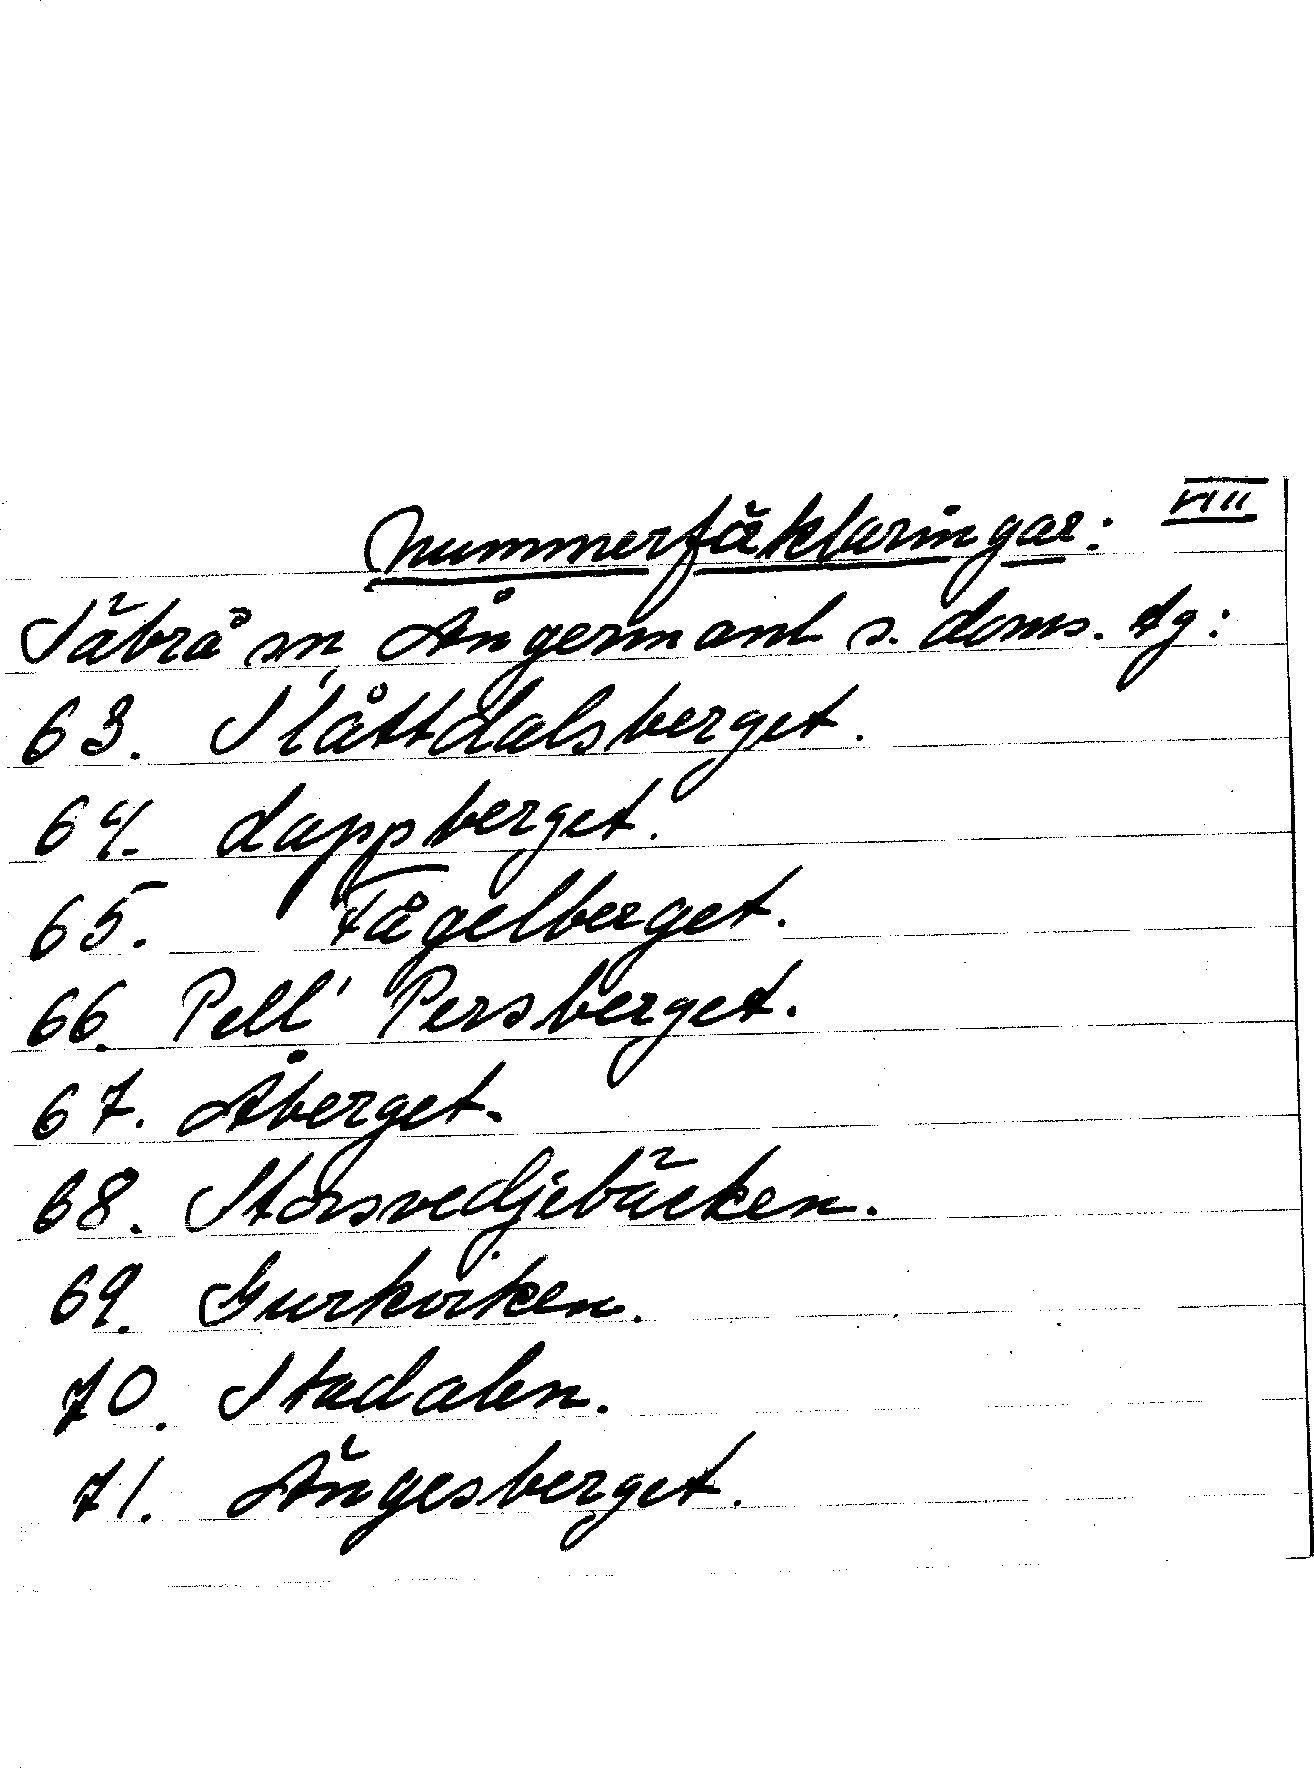 VIII
Nummerfäklaringar:
Säbrå sn, Ångermanl s. doms. tg:
63. Slåttdalsberget.
64. Lappberget.
65. Fågelberget.
66. Pell' Persberget.
67. Åberget.
68. Storsvedjebäcken.
69. Gurkoiken.
70. Stadalen.
71. Ängesberget.